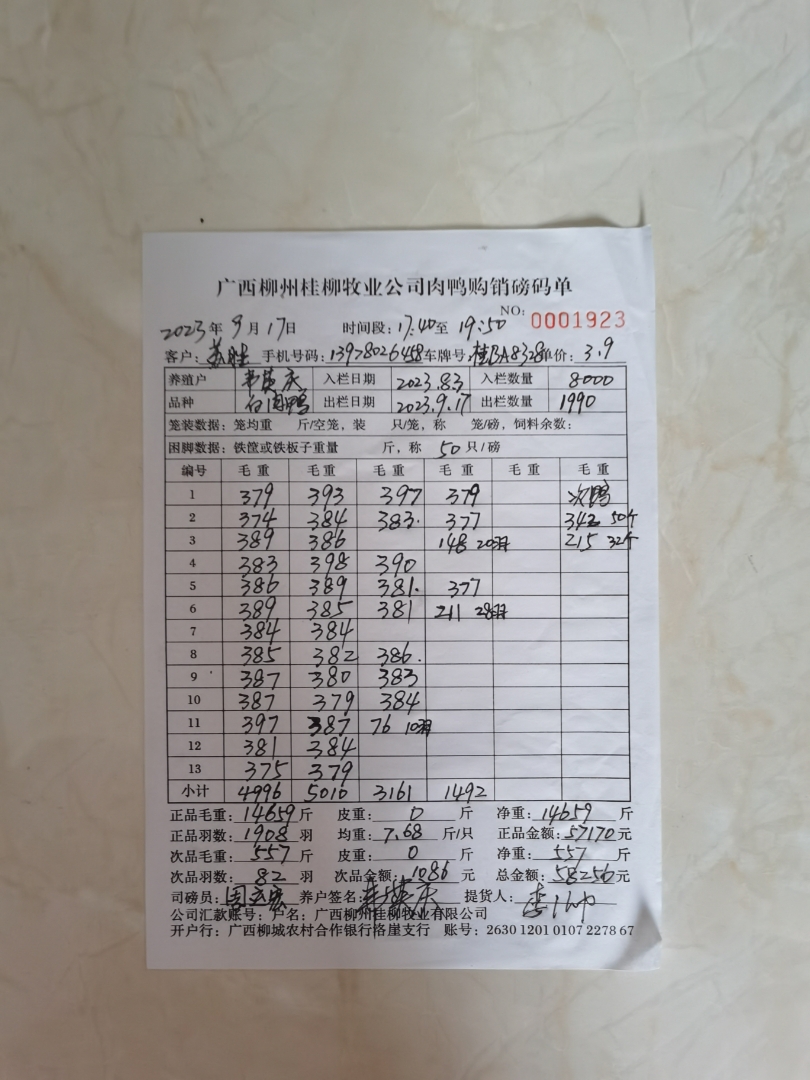 广西柳州桂柳牧业公司肉鸭购销磅码单
NO: 0001923
2023年9月17日 时间段: 17:40至19:50
客户: 苏胜 手机号码: 13978026458 车牌号: 桂BA8328 单价: 3.9
养殖户 韦英庆 入栏日期 2023.8.3 入栏数量 8000
品种 白肉鸭 出栏日期 2023.9.17 出栏数量 1990
笼装数据: 笼均重 斤/空笼, 装 只/笼, 称 笼/磅, 饲料余数:
困脚数据: 铁筐或铁板子重量 斤, 称 50只/磅
编号 毛重 毛重 毛重 毛重 毛重 毛重
1 379 393 397 379 次鸭
2 374 384 383. 377 342 50个
3 389 386 148 20羽 215 32个
4 383 398 390
5 386 389 381. 377
6 389 385 381 211 28羽
7 384 384
8 385 382 386.
9 387 380 383
10 387 379 384
11 397 387 76 10羽
12 381 384
13 375 379
小计 4996 5010 3161 1492
正品毛重: 14659斤 皮重: 0斤 净重: 14659斤
正品羽数: 1908羽 均重: 7.68斤/只 正品金额: 57170元
次品毛重: 557斤 皮重: 0斤 净重: 557斤
次品羽数: 82羽 次品金额: 1086元 总金额: 58256元
司磅员: 周 养户签名: 韦英庆 提货人: 李
公司汇款账号: 户名: 广西柳州桂柳牧业有限公司
开户行: 广西柳城农村合作银行洛崖支行 账号: 2630 1201 0107 2278 67